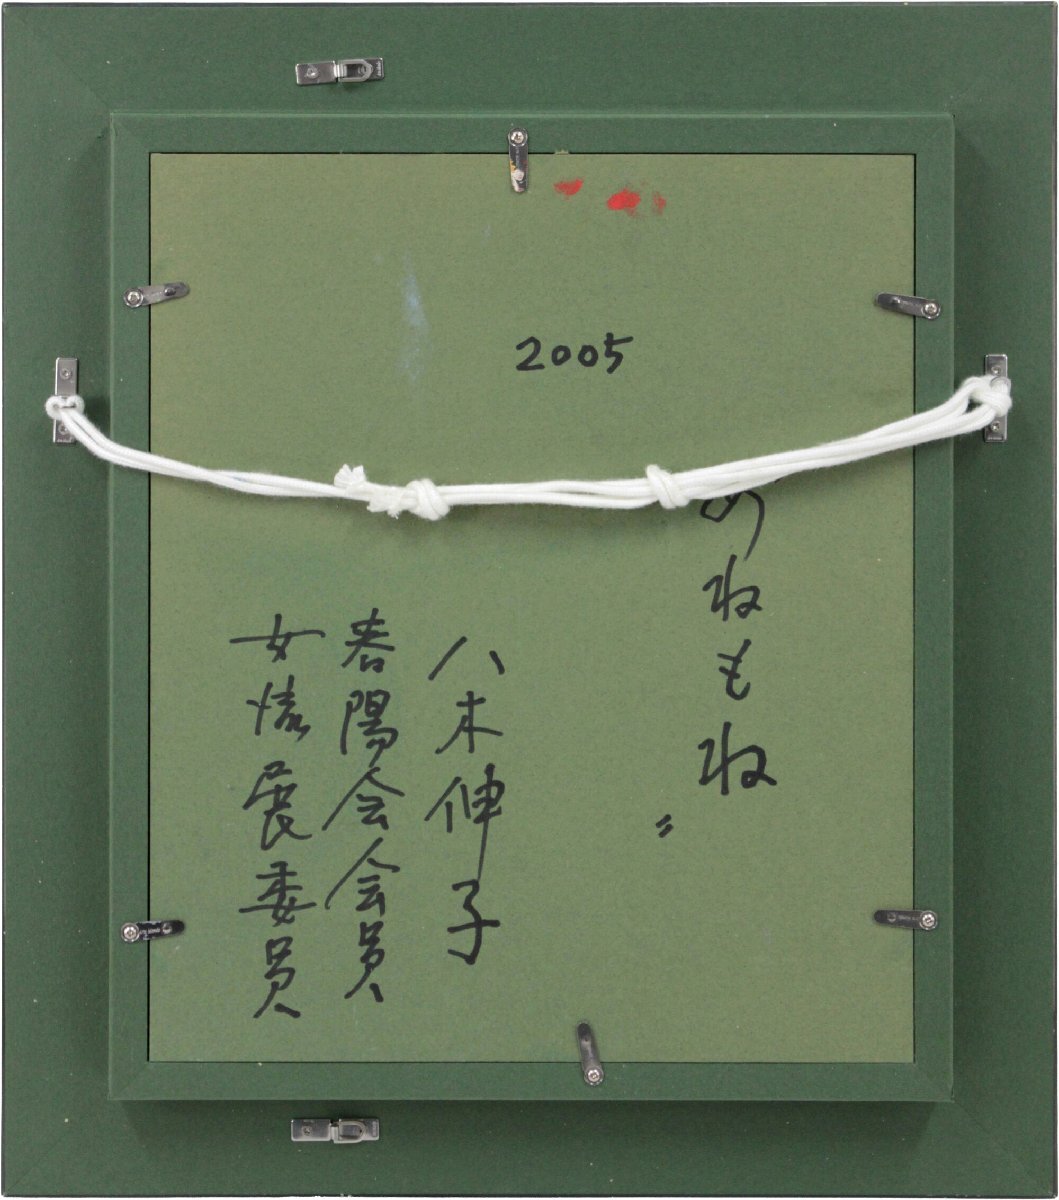 2005
あねもね〟
八木伸子
春陽会会員
女流展委員